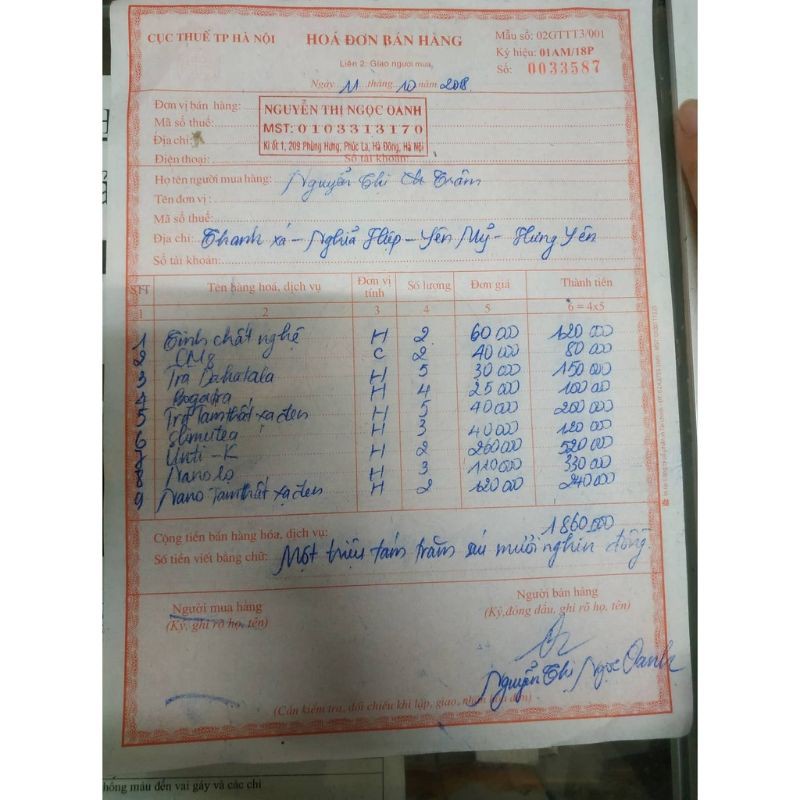 CỤC THUẾ TP HÀ NỘI
HOÁ ĐƠN BÁN HÀNG
Liên 2: Giao người mua
Ngày 11 tháng 10 năm 2018
Mẫu số: 02GTTT3/001
Ký hiệu: 01AM/18P
Số: 0033587
Đơn vị bán hàng:
Mã số thuế:
Địa chỉ:
Điện thoại: Số tài khoản:
NGUYỄN THỊ NGỌC OANH
MST: 0103313170
Ki ốt 1, 209 Phùng Hưng, Phúc La, Hà Đông, Hà Nội
Họ tên người mua hàng: Nguyễn Thị Trâm
Tên đơn vị:
Mã số thuế:
Địa chỉ: Thanh xá - Nghĩa Hiệp - Yên Mỹ - Hưng Yên
Số tài khoản:
STT Tên hàng hoá, dịch vụ Đơn vị tính Số lượng Đơn giá Thành tiền
1 2 3 4 5 6 = 4x5
1 Tinh chất nghệ H 2 60 000 120 000
2 C 2 40 000 80 000
3 Trà H 5 30 000 150 000
4 H 4 25 000 100 000
5 Trà Tam thất xạ đen H 5 40 000 200 000
6 Slimutea H 3 40 000 120 000
7 Unti - K H 2 260 000 520 000
8 Nano lọ H 3 110 000 330 000
9 Nano Tam thất xạ đen H 2 120 000 240 000
Cộng tiền bán hàng hóa, dịch vụ: 1 860 000
Số tiền viết bằng chữ: Một triệu tám trăm sáu mươi nghìn đồng.
Người mua hàng
(Ký, ghi rõ họ, tên)
Người bán hàng
(Ký, đóng dấu, ghi rõ họ, tên)
Nguyễn Thị Ngọc Oanh
(Cần kiểm tra, đối chiếu khi lập, giao, nhận hóa đơn)
hồng máu đến vai gáy và các chi